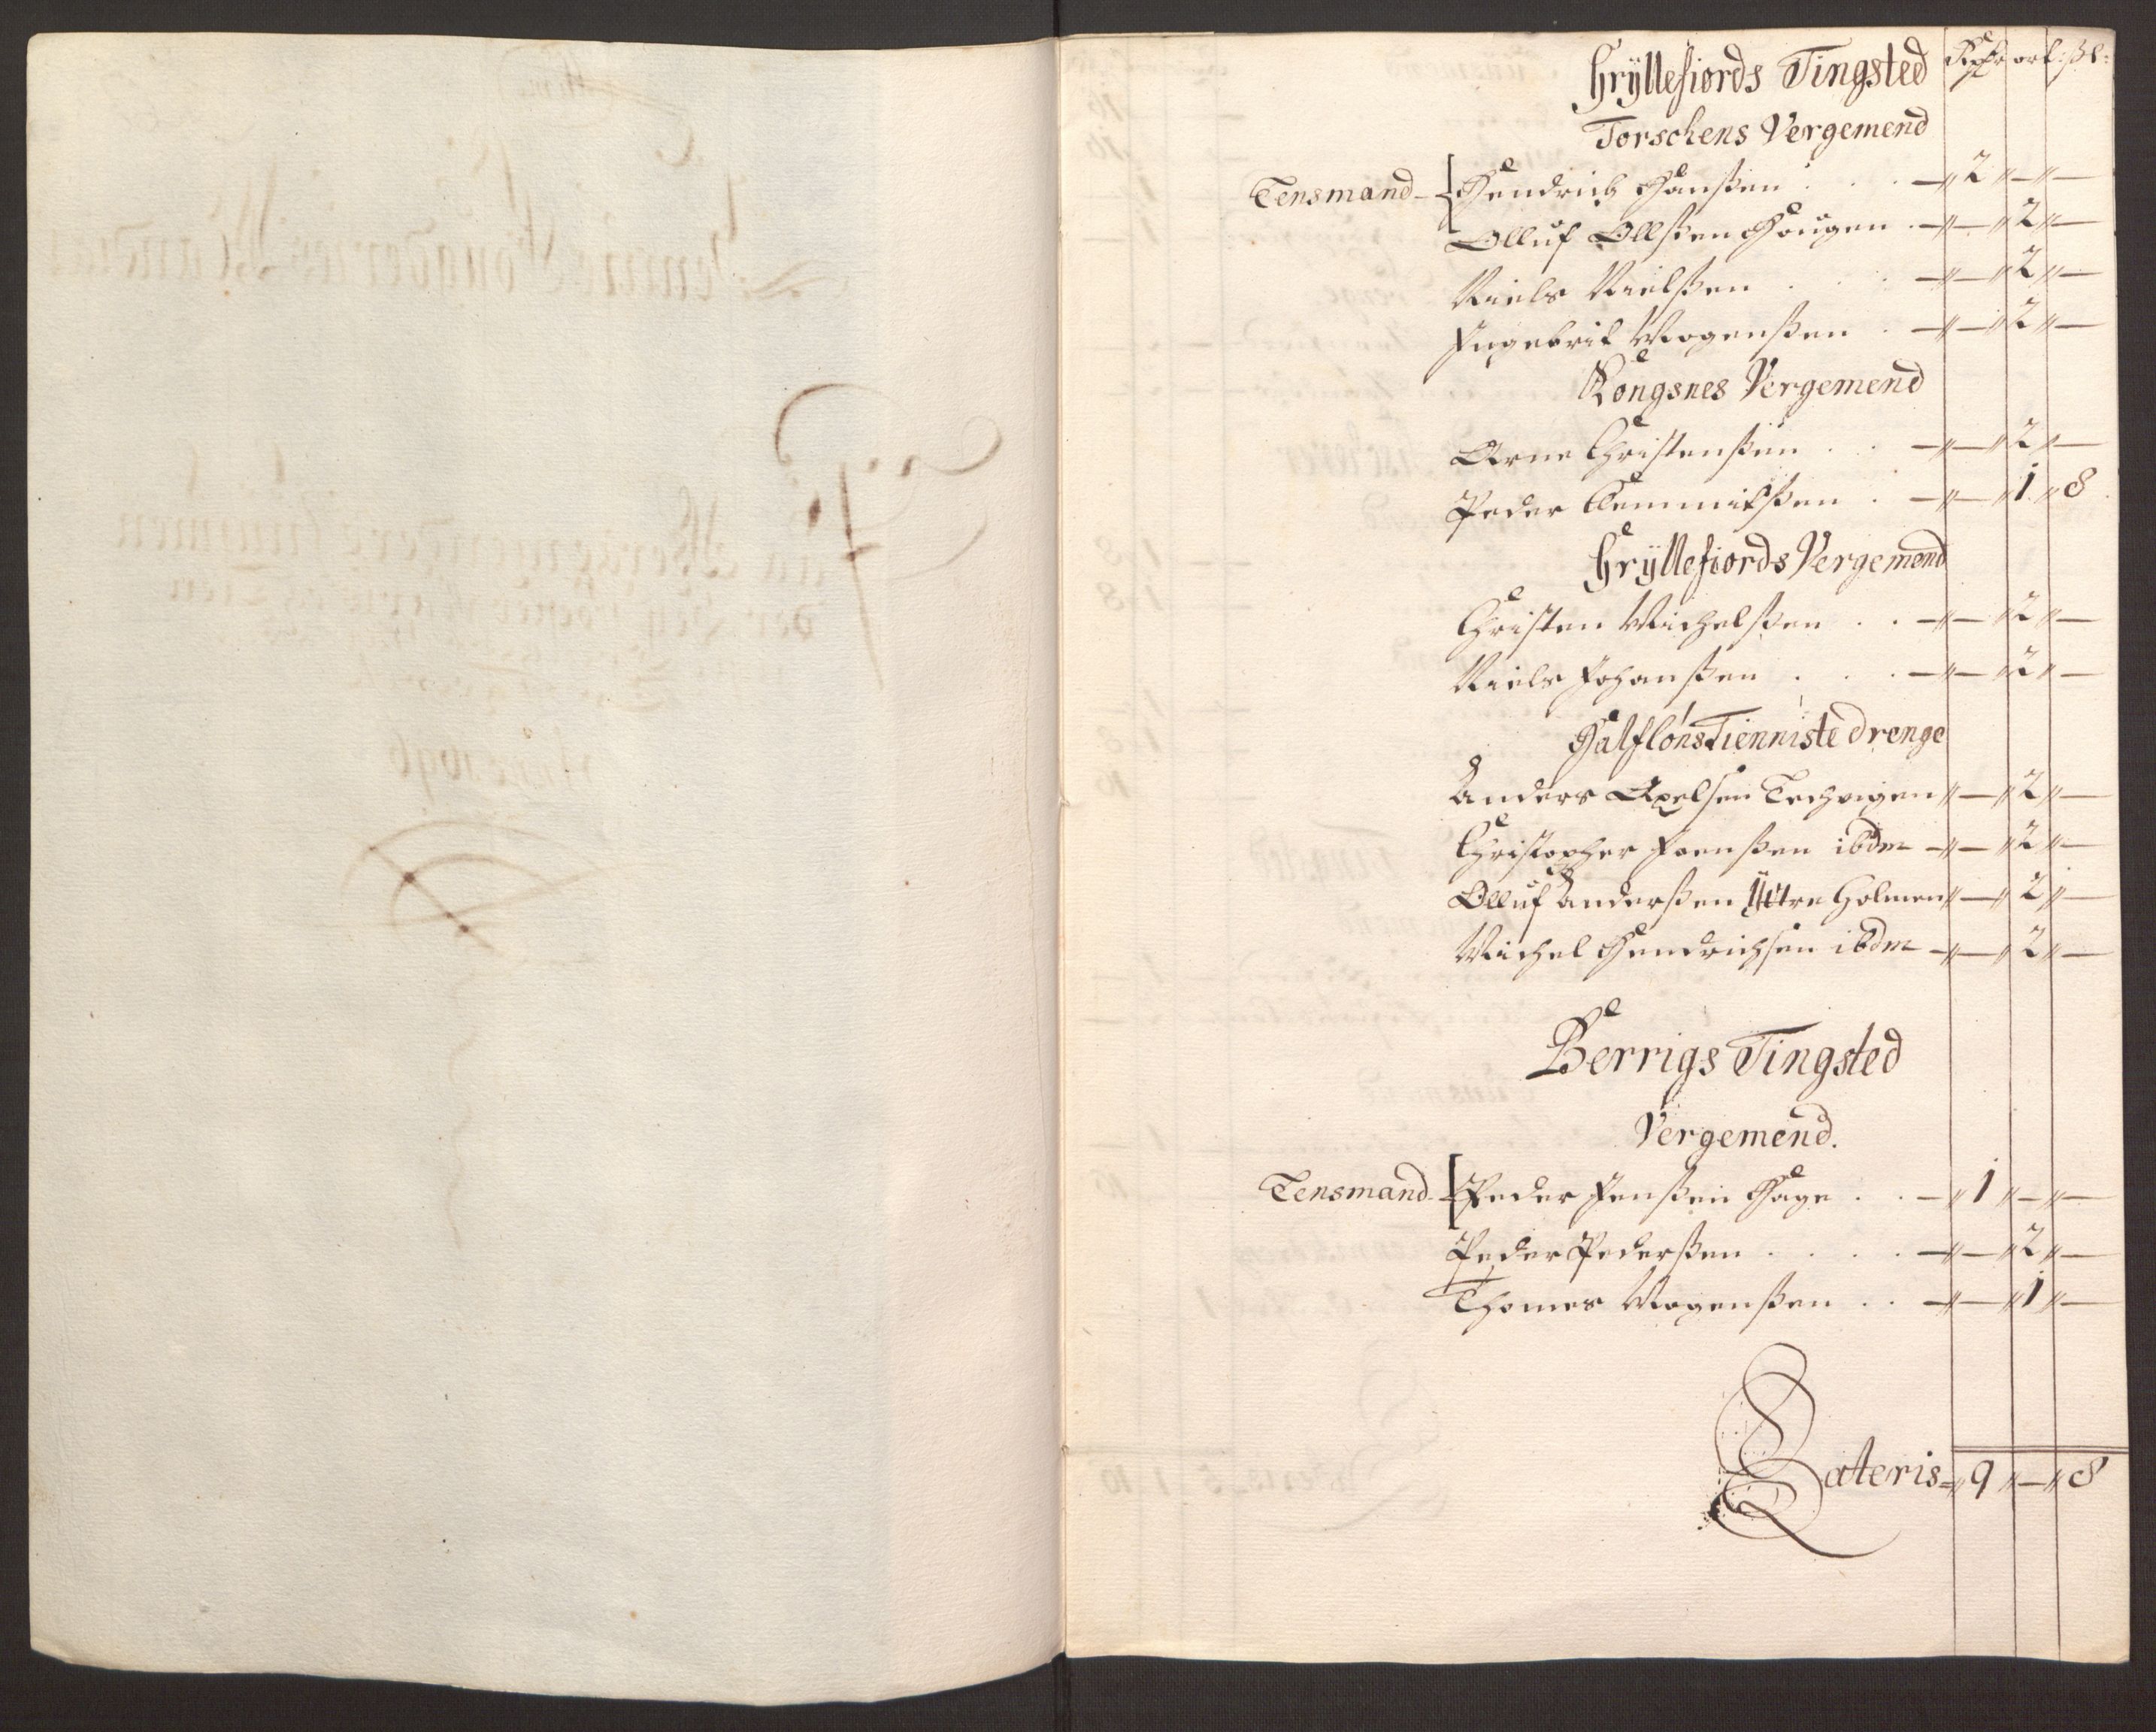 Gryllefiords Tingsted Rdr ort ßl:
Torschens Vergemend
Lensmand - Hendrich Hanßen . . . - " 2 " - " -
Olluf Ollßen Hougen . - " - " 2 " -
Niels Nielßen . . . - " - " 2 " -
Ingebrit Mogenßen . - " - " 2 " -
Kongsnes Vergemend
Arne Christenßen . . - " - " 2 " -
Peder Clemmitßen . - " - " 1 " 8
Gryllefiords Vergemend
Christen Michelßen . . - " - " 2 " -
Niels Johanßen . . . - " - " 2 " -
Halflóns Tienniste drenge
Anders Axelsen Techvigen " - " 2 " -
Christopher Joenßen ibdm - " - " 2 " -
Olluf Anderßen Ÿttre Holmen " - " 2 " -
Michel Hendrichsen ibdm - " - " 2 " -
Berrigs Tingsted
Vergemend.
Lensmand - Peder Jenßen Hage . . - " 1 " - " -
Peder Pederßen . . . . - " - " 2 " -
Thomes Mogenßen . . - " - " 1 " -
Lateris = " 9 " - " 8